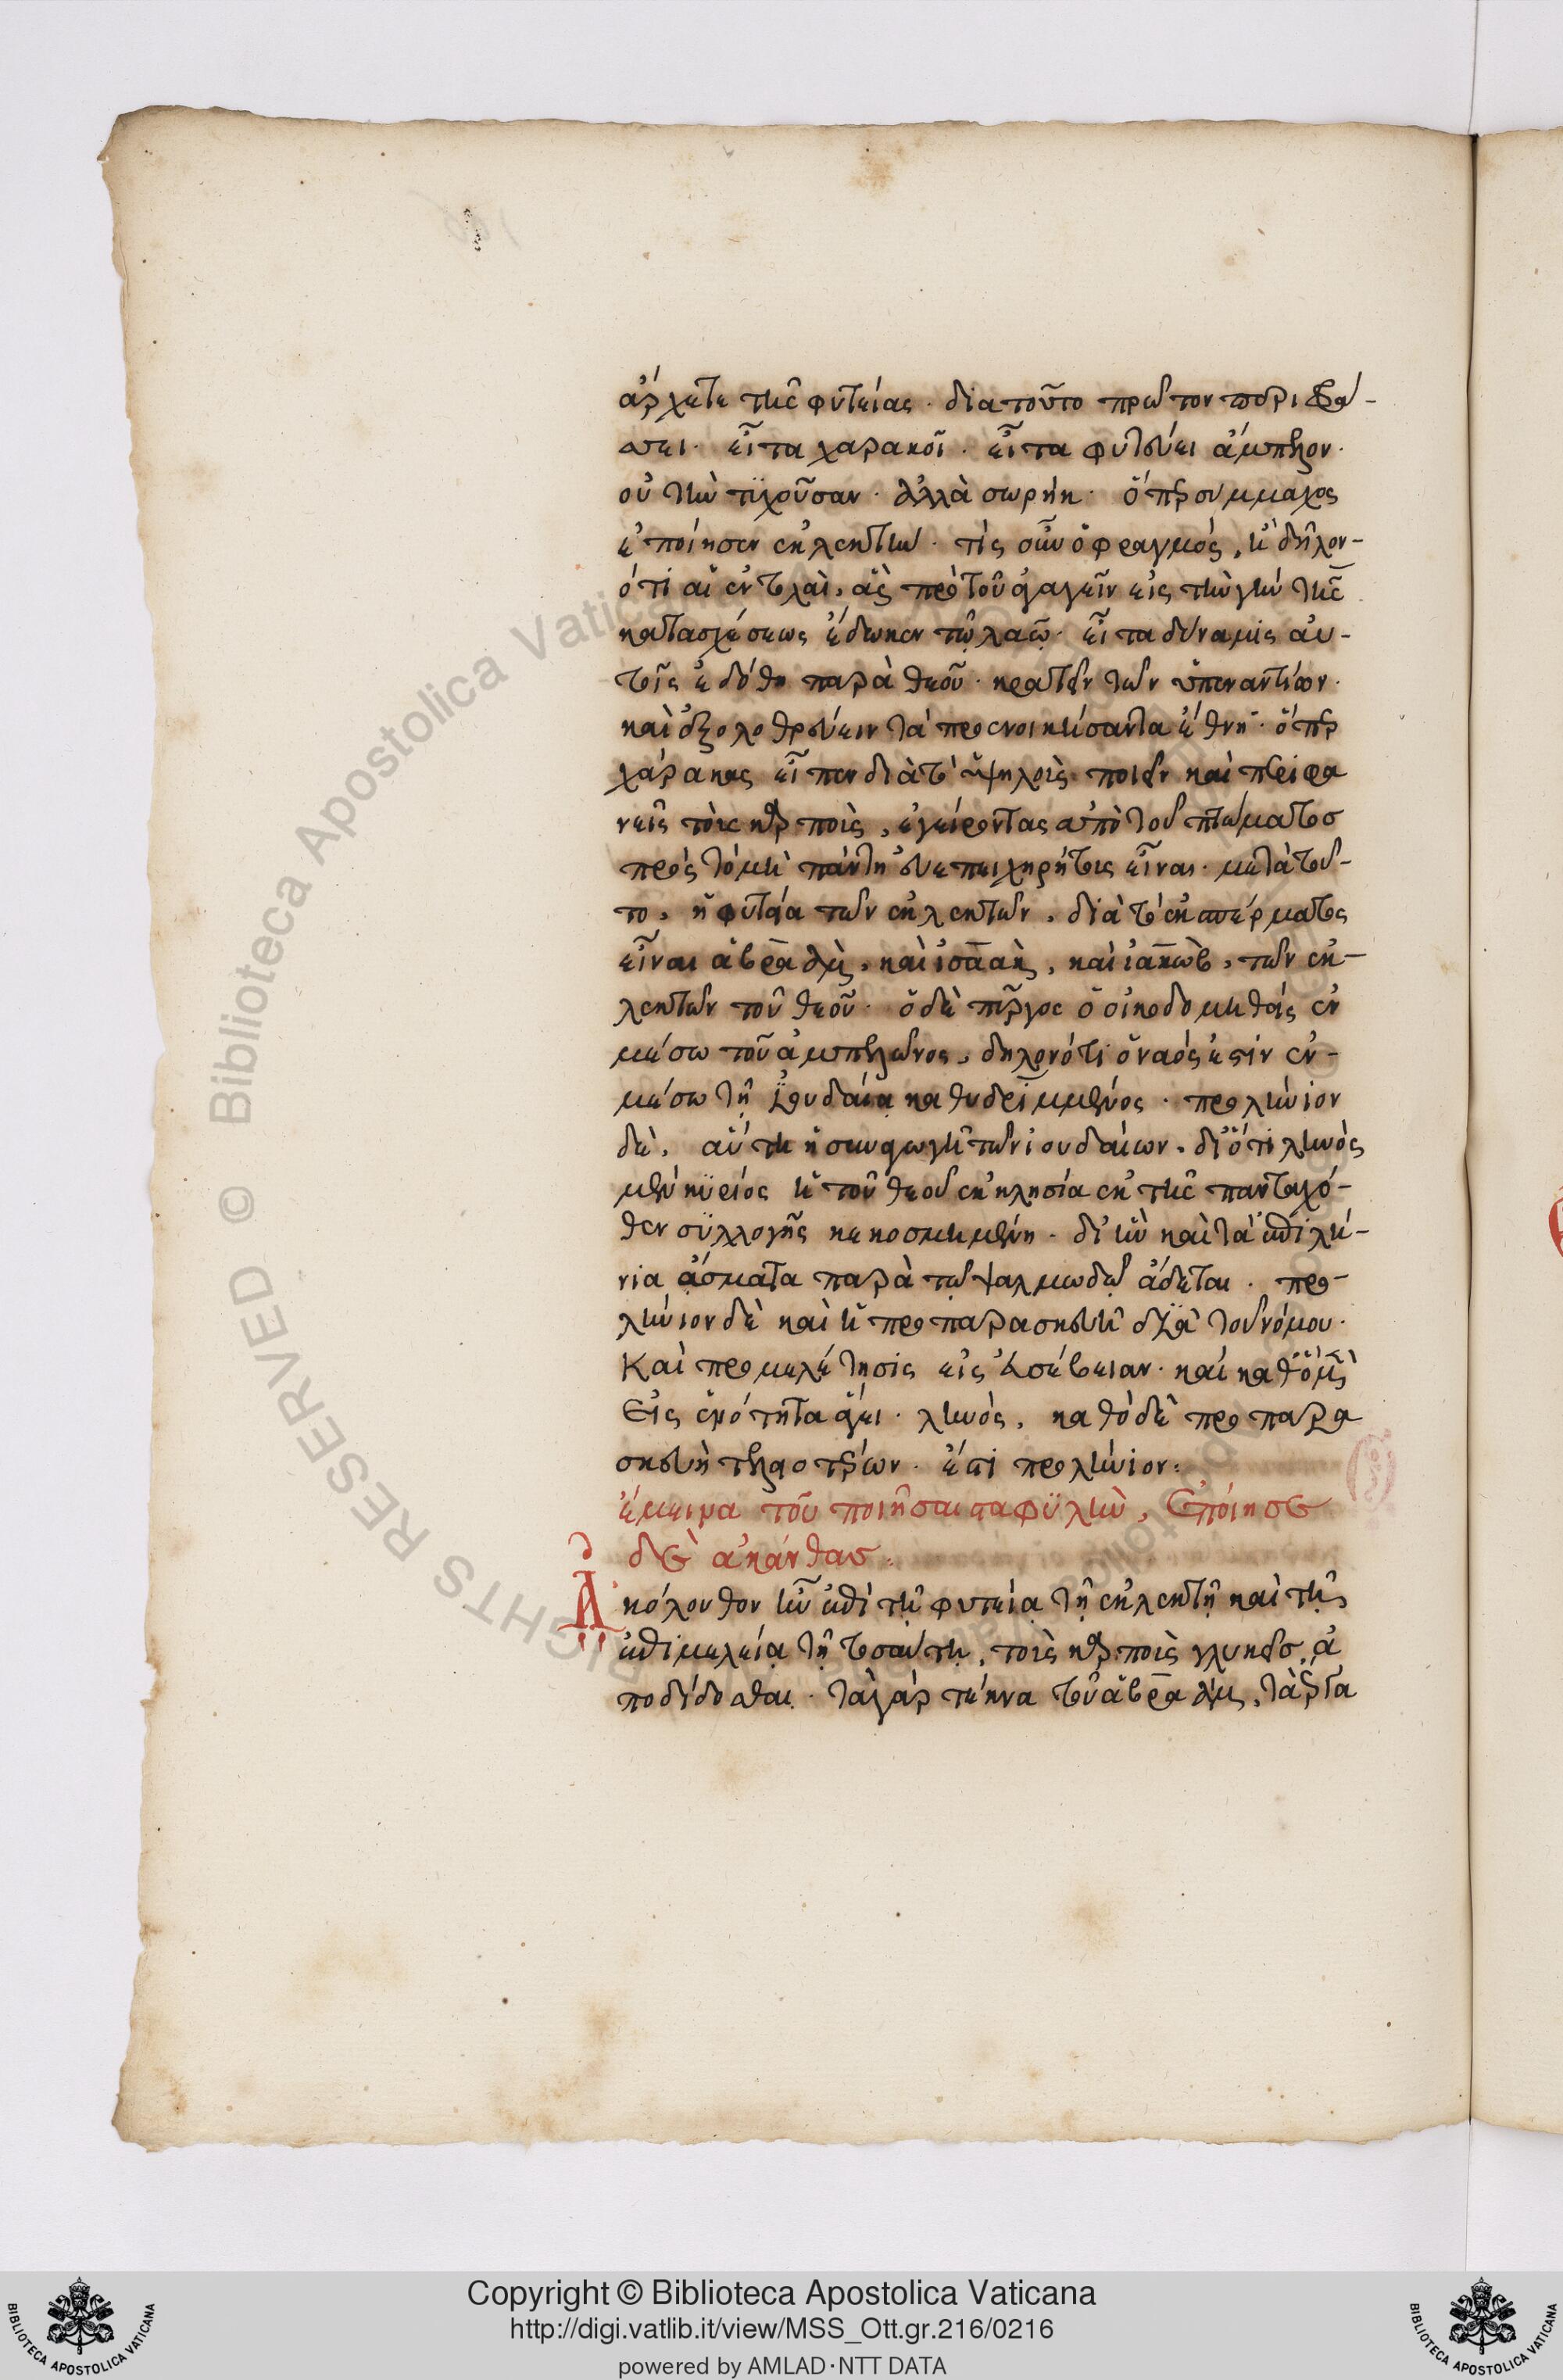 ἄρχεται τῆς φυτείας · διατοῦτο πρῶτον περιφρά-
σσει · εἶτα χαρακοῖ · εἶτα φυτεύει ἄμπελον ·
οὐ τὴν τυχοῦσαν · ἀλλὰ σωρήκ · ὅπερ σύμμαχος
ἐποίησεν ἐκλεκτὴν · τίς οὖν ὁ φραγμός, ἢ δῆλον-
ότι αἱ ἐντολαὶ, ἃς πρὸ τοῦ ἀγαγεῖν εἰς τὴν γῆν τῆς
κατασχέσεως ἔδωκεν τῷ λαῷ · εἶτα δύναμις αὐ-
τοῖς ἐδόθη παρὰ θεοῦ · κρατεῖν τῶν ὑπεναντίων ·
καὶ ἐξολοθρεύειν τὰ προενοικήσαντα ἔθνη · ὅπερ
χάρακας εἶπεν διὰ τὸ ὑψηλοὺς ποιεῖν καὶ περιφα
νεῖς τοὺς καρποὺς, ἐγείροντας ἀπὸ τοῦ πτώματος
πρὸς τὸ μὴ πάντη εὐεπιχειρήτους εἶναι · μετὰ τοῦ-
το, ἡ φυτεία τῶν ἐκλεκτῶν, διὰ τὸ ἐκ σπέρματος
εἶναι ἀβραὰμ, καὶ ἰσαὰκ, καὶ ἰακὼβ, τῶν ἐκ-
λεκτῶν τοῦ θεοῦ · ὁ δὲ πύργος ὁ οἰκοδομηθεὶς ἐν
μέσω τοῦ ἀμπελῶνος, δηλονότι ὁ ναός ἐστιν ἐν-
μέσω τῇ ἰουδαίᾳ καθιδρυμμένος · προλήνιον
δὲ, αὕτη ἡ συναγωγὴ τῶν ἰουδαίων · διότι ληνὸς
μὲν κυρίως ἡ τοῦ θεοῦ ἐκκλησία ἐκ τῆς πανταχό-
θεν συλλογῆς κεκοσμημένη · δι' ἣν καὶ τὰ ἐπιλή-
νια ᾄσματα παρὰ τῶν ψαλμωδῶν ᾄδεται · προ-
λήνιον δὲ καὶ ἡ προπαρασκευὴ διὰ τοῦ νόμου ·
Καὶ προμελέτησις εἰς εὐσέβειαν · καὶ καθὸ μὲν
εἰς ἑνότητα ἄγει · ληνὸς, καθὸ δὲ προπαρα
σκευὴ τελειοτέρων · ἐστὶ προλήνιον :
ἔμεινα τοῦ ποιῆσαι σταφυλὴν, ἐποίησε
δὲ ἀκάνθας ·
Ἀκόλουθον ἦν ἐπὶ τῇ φυτεία τῇ ἐκλεκτῇ καὶ τῇ
ἐπιμελεία τῇ τοσαύτη, τοὺς καρποὺς γλυκεῖς ἀ
ποδίδοσθαι · τὰ γὰρ τέκνα τοῦ ἀβραὰμ, τὰ ἔργα
Copyright © Biblioteca Apostolica Vaticana
http://digi.vatlib.it/view/MSS_Ott.gr.216/0216
powered by AMLAD·NTT DATA